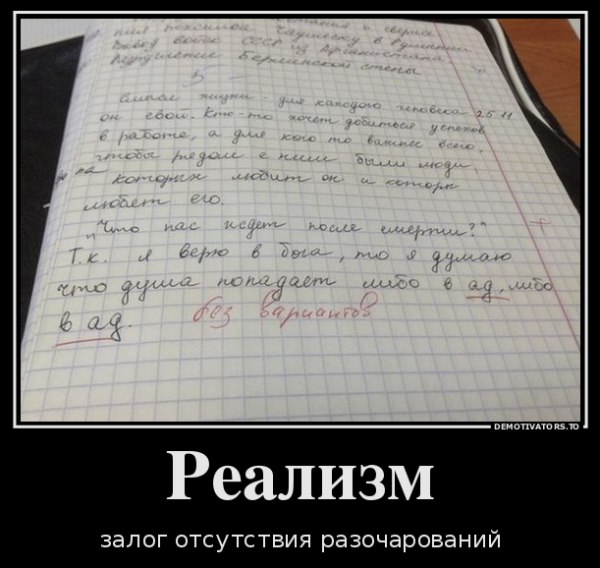 Вывод войск СССР из Афганистана,
Разрушение Берлинской стены
5
25.11
Смысл жизни для каждого человека
он свой. Кто-то хочет добиться успехов
в работе, а для кого то важнее всего,
чтобы рядом с ним были люди,
на которых любит он и которые
любят его.
„Что нас ждет после смерти?"
Т.к. я верю в бога, то я думаю
что душа попадает либо в ад, либо
в ад. без вариантов
DEMOTIVATORS.TO
Реализм
залог отсутствия разочарований